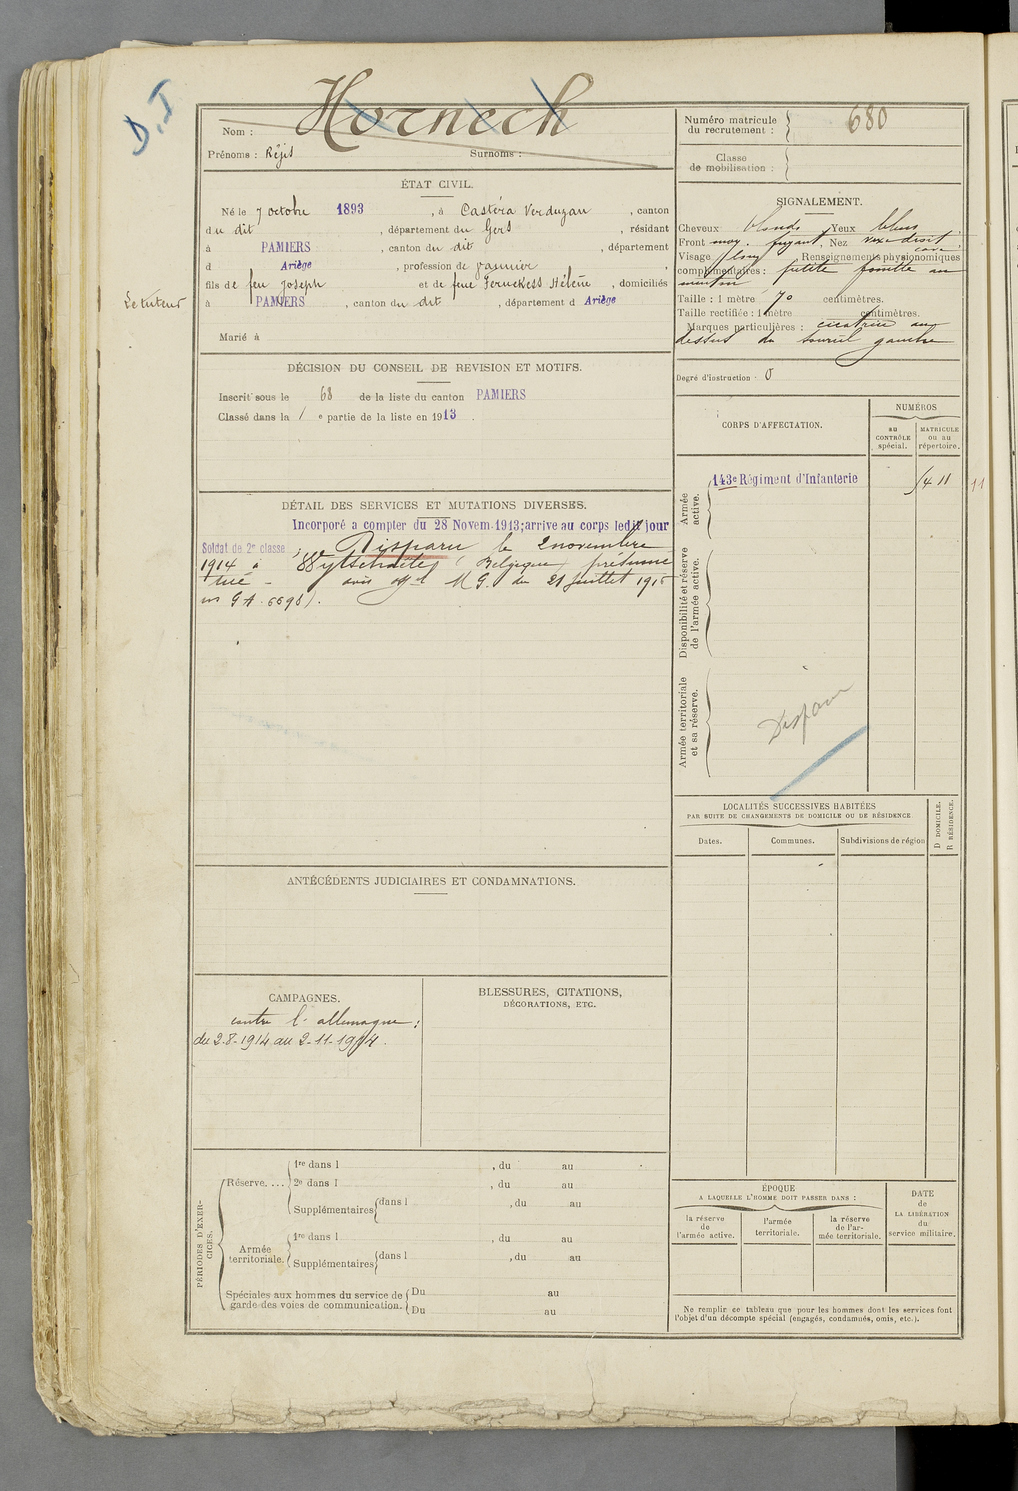 D.I
Nom : Hornech
Prénoms : Régis Surnoms :
Numéro matricule
du recrutement : 680
Classe
de mobilisation :
ÉTAT CIVIL.
Né le 7 octobre 1893, à Castéra Verduzan, canton
du dit, département du Gers, résidant
à PAMIERS, canton du dit, département
d Ariège, profession de vannier,
fils de feu Joseph et de feue Hélène, domiciliés
Le tuteur
à PAMIERS, canton du dit, département d Ariège
Marié à
SIGNALEMENT.
Cheveux blonds Yeux bleus
Front moy. fuyant, Nez vexe droit
cave
Visage long Renseignements physionomiques
complémentaires : petite au
menton
Taille : 1 mètre 70 centimètres.
Taille rectifiée : 1 mètre centimètres.
Marques particulières : cicatrice au
dessus du sourcil gauche
Degré d'instruction : 0
DÉCISION DU CONSEIL DE REVISION ET MOTIFS.
Inscrit sous le 68 de la liste du canton PAMIERS
Classé dans la 1 e partie de la liste en 1913.
CORPS D'AFFECTATION.
NUMÉROS
au
CONTRÔLE
spécial.
MATRICULE
ou au
répertoire.
Armée
active.
143e Régiment d'Infanterie
11
Disponibilité et réserve
de l'armée active.
Armée territoriale
et sa réserve.
Disparu
DÉTAIL DES SERVICES ET MUTATIONS DIVERSES.
Incorporé a compter du 28 Novem. 1913; arrive au corps ledit jour
Soldat de 2e classe; Disparu le 2 novembre
1914 à Wytschaete (Belgique) présumé
tué - avis off el M G. du 21 Juillet 1915
G A. 6698).
LOCALITÉS SUCCESSIVES HABITÉES
PAR SUITE DE CHANGEMENTS DE DOMICILE OU DE RÉSIDENCE
Dates.
Communes.
Subdivisions de région
D DOMICILE.
R RÉSIDENCE.
ANTÉCÉDENTS JUDICIAIRES ET CONDAMNATIONS.
CAMPAGNES.
contre l'allemagne :
du 2-8-1914 au 2-11-1914.
BLESSURES, CITATIONS,
DÉCORATIONS, ETC.
PÉRIODES D'EXER-
CICES.
Réserve....
1re dans l , du au
2e dans l , du au
Supplémentaires dans l , du au
Armée
territoriale.
1re dans l , du au
Supplémentaires dans l , du au
Spéciales aux hommes du service de
garde des voies de communication.
Du au
Du au
ÉPOQUE
A LAQUELLE L'HOMME DOIT PASSER DANS :
la réserve
de
l'armée active.
l'armée
territoriale.
la réserve
de l'ar-
mée territoriale.
DATE
de
LA LIBÉRATION
du
service militaire.
Ne remplir ce tableau que pour les hommes dont les services font
l'objet d'un décompte spécial (engagés, condamnés, omis, etc.).